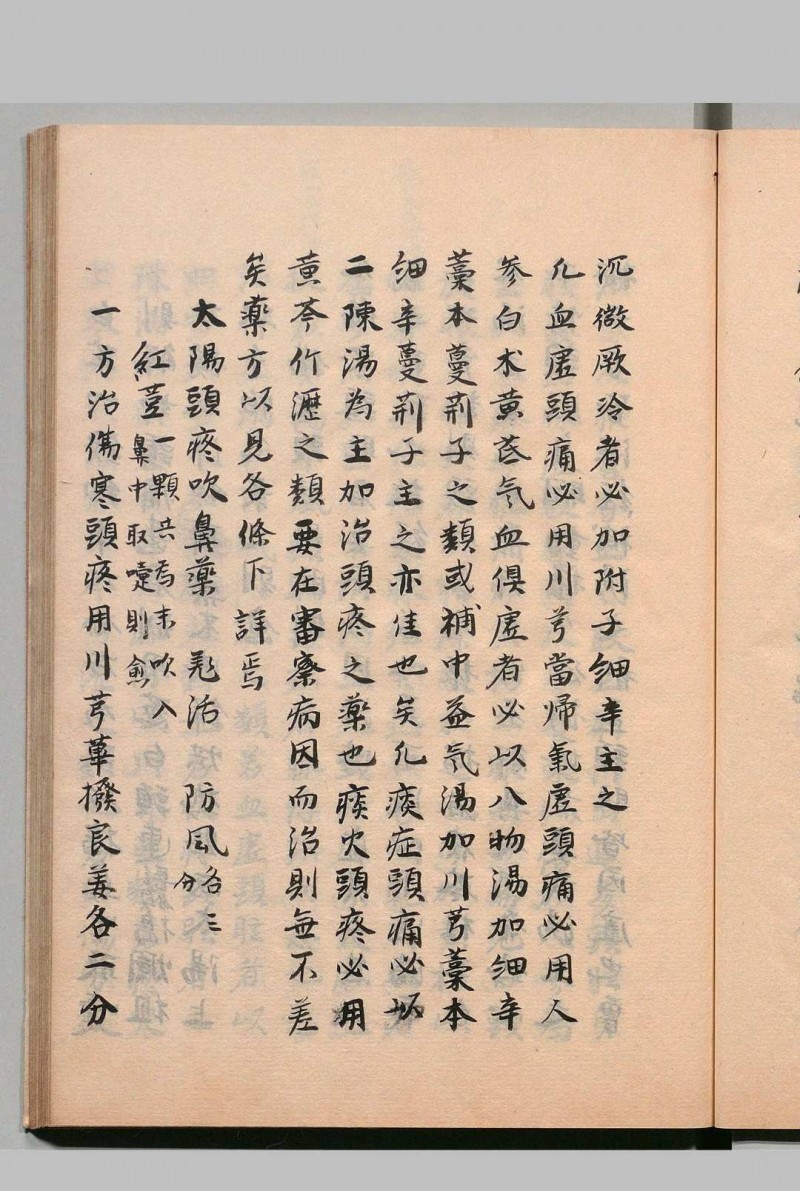 沉微厥冷者必加附子細辛主之
凢血虗頭痛必用川芎當帰氣虗頭痛必用人
参白术黄茋気血俱虗者必以八物湯加細辛
藁本蔓荊子之類或補中益気湯加川芎藁本
細辛蔓荊子主之亦佳也矣凢痰症頭痛必以
二陳湯為主加治頭疼之藥也痰火頭疼必用
黄芩竹瀝之類要在審察病因而治則無不差
矣藥方以見各條下詳焉
太陽頭疼吹鼻藥 羌活 防風各三分
紅荳一顆共為末吹入鼻中取嚏則愈
一方治傷寒頭疼用川芎蓽撥良姜各二分